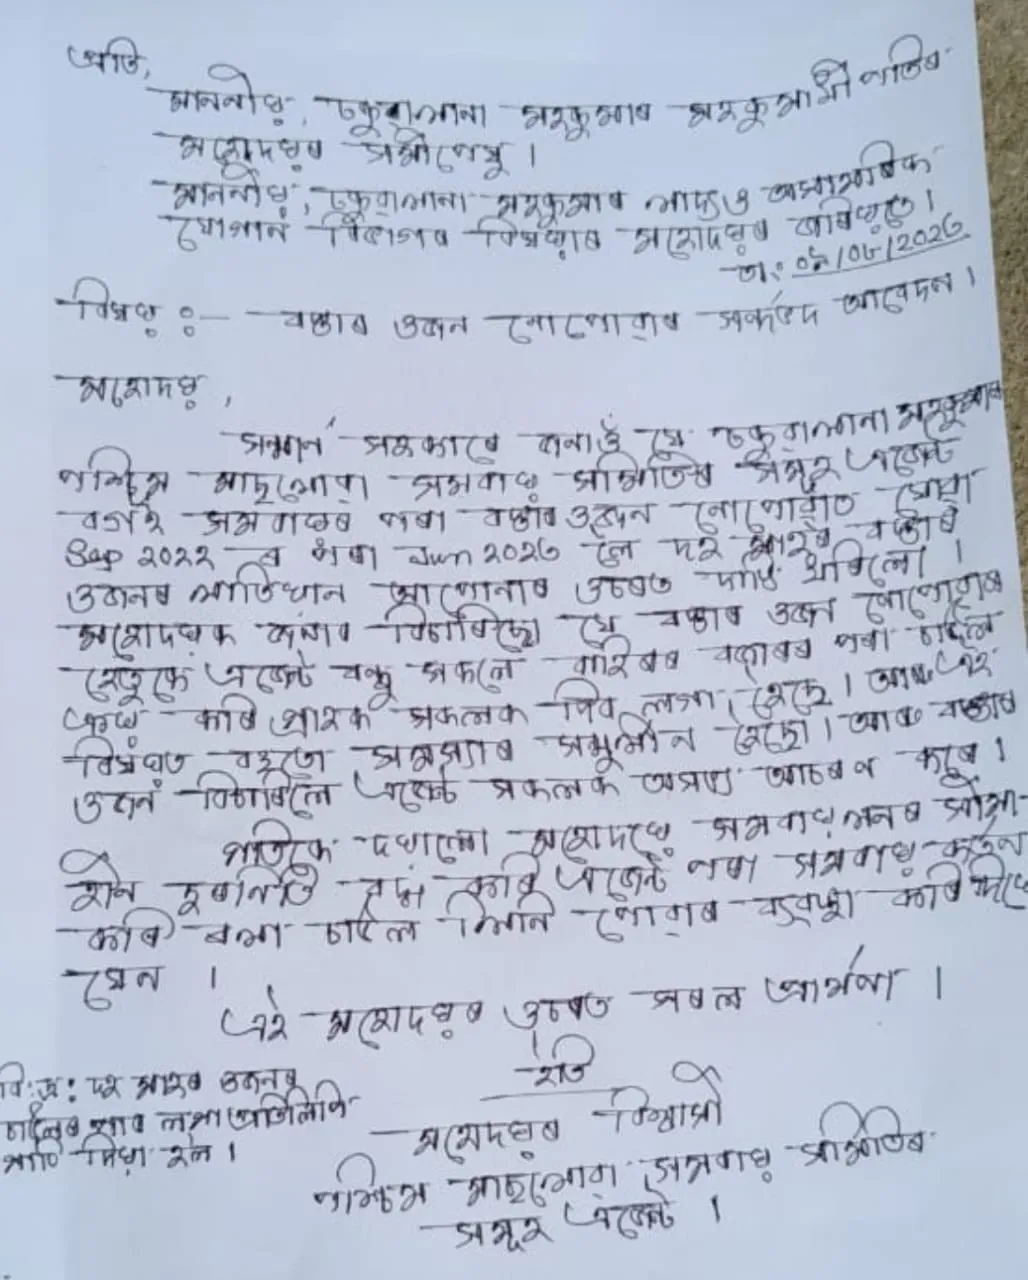 প্ৰতি,
মাননীয়, ঢকুৱাখানা মহকুমাৰ মহকুমাধিপতিৰ
মহোদয়ৰ সমীপেষু।
মাননীয়, ঢকুৱাখানা মহকুমাৰ খাদ্য ও অসামৰিক
যোগান বিভাগৰ বিষয়াৰ মহোদয়ৰ জৰিয়তে।
তা:
বিষয় :- বস্তাৰ ওজন নোপোৱাৰ সন্দৰ্ভত আবেদন।
মহোদয়,
সন্মান সহকাৰে জনাওঁ যে ঢকুৱাখানা মহকুমাৰ
পশ্চিম মাছখোৱা সমবায় সমিতিৰ সমূহ এজেন্ট
বৰ্গই সমবায়ৰ পৰা বস্তাৰ ওজন নোপোৱাত যোৱা
Sep ২০২২ ৰ পৰা Jun ২০২৩ লৈ দহ মাহৰ বস্তাৰ
ওজনৰ খতিয়ান আপোনাৰ ওচৰত দাখি ধৰিলো।
মহোদয়ক জনাব বিচাৰিছো যে বস্তাৰ ওজন নোপোৱাৰ
হেতুকে এজেন্ট বন্ধু সকলে বাহিৰৰ বজাৰৰ পৰা চাউল
ক্ৰয় কৰি গ্ৰাহক সকলক দিব লগা হৈছে। আৰু এই
বিষয়ত বহুতো সমস্যাৰ সন্মুখীন হৈছো। আৰু বস্তাৰ
ওজন বিচাৰিলে এজেন্ট সকলক অসভ্য আচৰণ কৰে।
গতিকে দয়ালো মহোদয়ে সমবায়খনৰ সীমা-
হীন দুৰনিতি বন্ধ কৰি এজেন্ট পৰা সমবায় কৰ্তন
কৰি ৰখা চাউল খিনি পোৱাৰ ব্যৱস্থা কৰি দিয়ে
যেন।
এই মহোদয়ৰ ওচৰত সৰল প্ৰাৰ্থনা।
ইতি
মহোদয়ৰ বিশ্বাসী
পশ্চিম মাছখোৱা সমবায় সমিতিৰ
সমূহ এজেন্ট।
বি:দ্ৰ: দহ মাহৰ ওজনৰ
চাউলৰ লগা প্ৰতিলিপি
দিয়া হল।